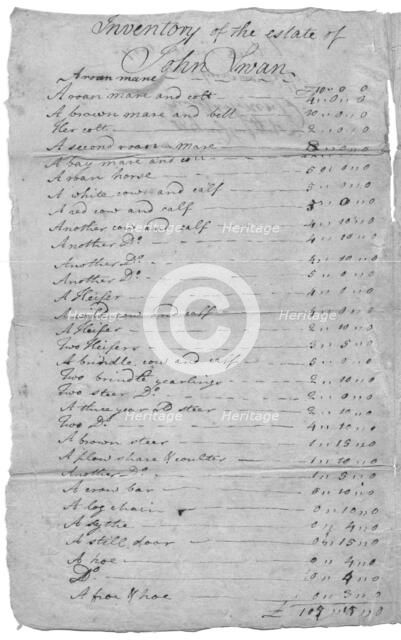 Inventory of the estate of
John Swan
A roan mare £10 " 0 " 0
A roan mare and colt 4 " 0 " 0
A brown mare and bell 10 " 0 " 0
Her colt 2 " 0 " 0
A second roan mare 8
A bay mare and
A roan horse 5 0 " 0
A white cow and calf 5 " 0 " 0
A red cow and calf 5 " 0 " 0
Another cow and calf 4 " 10 " 0
Another Do 4 " 10 " 0
Another Do 4 " 10 " 0
Another Do 5 " 0 " 0
A Heifer 4 " 0 " 0
A cow and calf 0 " 0
A Heifer 2 " 10 " 0
Two Heifers 3 " 5 " 0
A brindle cow and calf 5 " 0 " 0
Two brindle yearlings 2 " 10 " 0
Two steer Do 2 " 0 " 0
A three year old steer 2 " 10 " 0
Two Do 4 " 10 " 0
A brown steer 1 " 15 " 0
A plow share & coulter 1 " 10 " 0
Another Do 1 " 5 " 0
A crow bar 0 " 10 " 0
A log chain 0 " 10 " 0
A sythe 0 " 4 " 0
A still door 0 " 15 " 0
A hoe 0 " 4 " 0
Do 0 " 4 " 0
A froe & hoe 0 " 3 " 0
£ 105 " 15 " 0
Heritage
Heritage
Heritage
Heritage
Heritage
Heritage